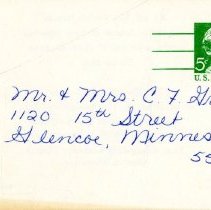 5
U.S.
Mr. & Mrs. C. F.
1120 15th Street
Glencoe, Minnes
55